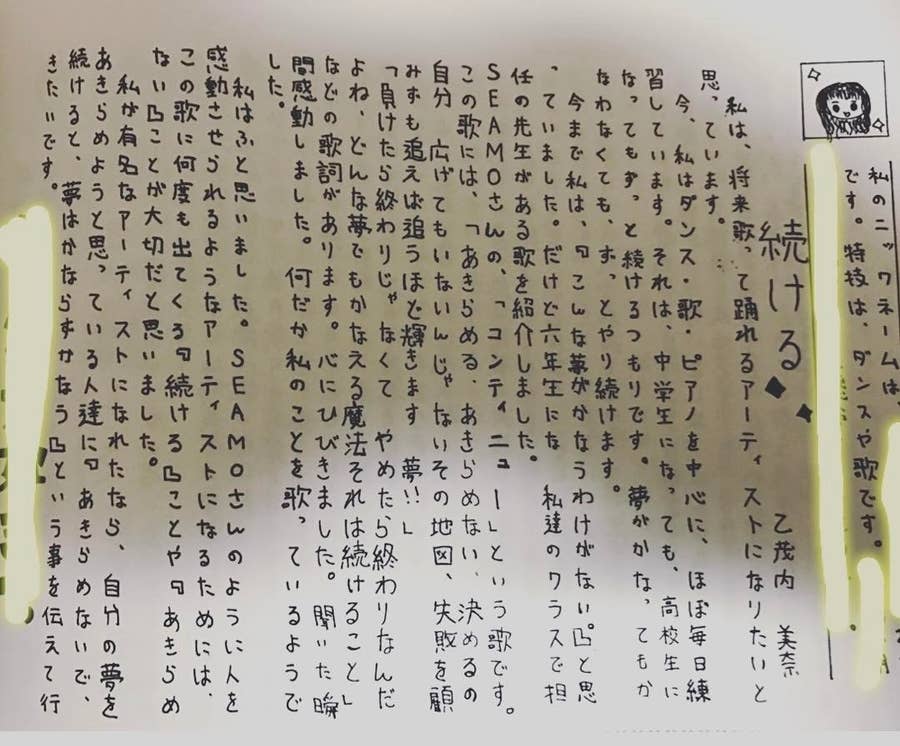 私のニックネームは、
です。特技は、ダンスや歌です。
続ける◆◆
乙茂内 美奈
私は、将来歌って踊れるアーティストになりたいと
思っています。
今、私はダンス・歌・ピアノを中心に、ほぼ毎日練
習しています。それは、中学生になっても、高校生に
なってもずっと続けるつもりです。夢がかなってもか
なわなくても、ずっとやり続けます。
今まで私は、『こんな夢がかなうわけがない』と思
っていました。だけど六年生にな 私達のクラスで担
任の先生がある歌を紹介しました。
SEAMOさんの、「コンティニュー」という歌です。
この歌には、「あきらめる、あきらめない、決めるの
自分 広げてもいないんじゃないその地図、失敗を顧
みずも追えば追うほど輝きます 夢!!」
「負けたら終わりじゃなくて やめたら終わりなんだ
よね、どんな夢でもかなえる魔法それは続けること」
などの歌詞があります。心にひびきました。聞いた瞬
間感動しました。何だか私のことを歌っているようで
した。
私はふと思いました。SEAMOさんのように人を
感動させられるようなアーティストになるためには、
この歌に何度も出てくる『続ける』ことや『あきらめ
ない』ことが大切だと思いました。
私が有名なアーティストになれたなら、自分の夢を
あきらめようと思っている人達に『あきらめないで、
続けると、夢はかならずかなう』という事を伝えて行
きたいです。